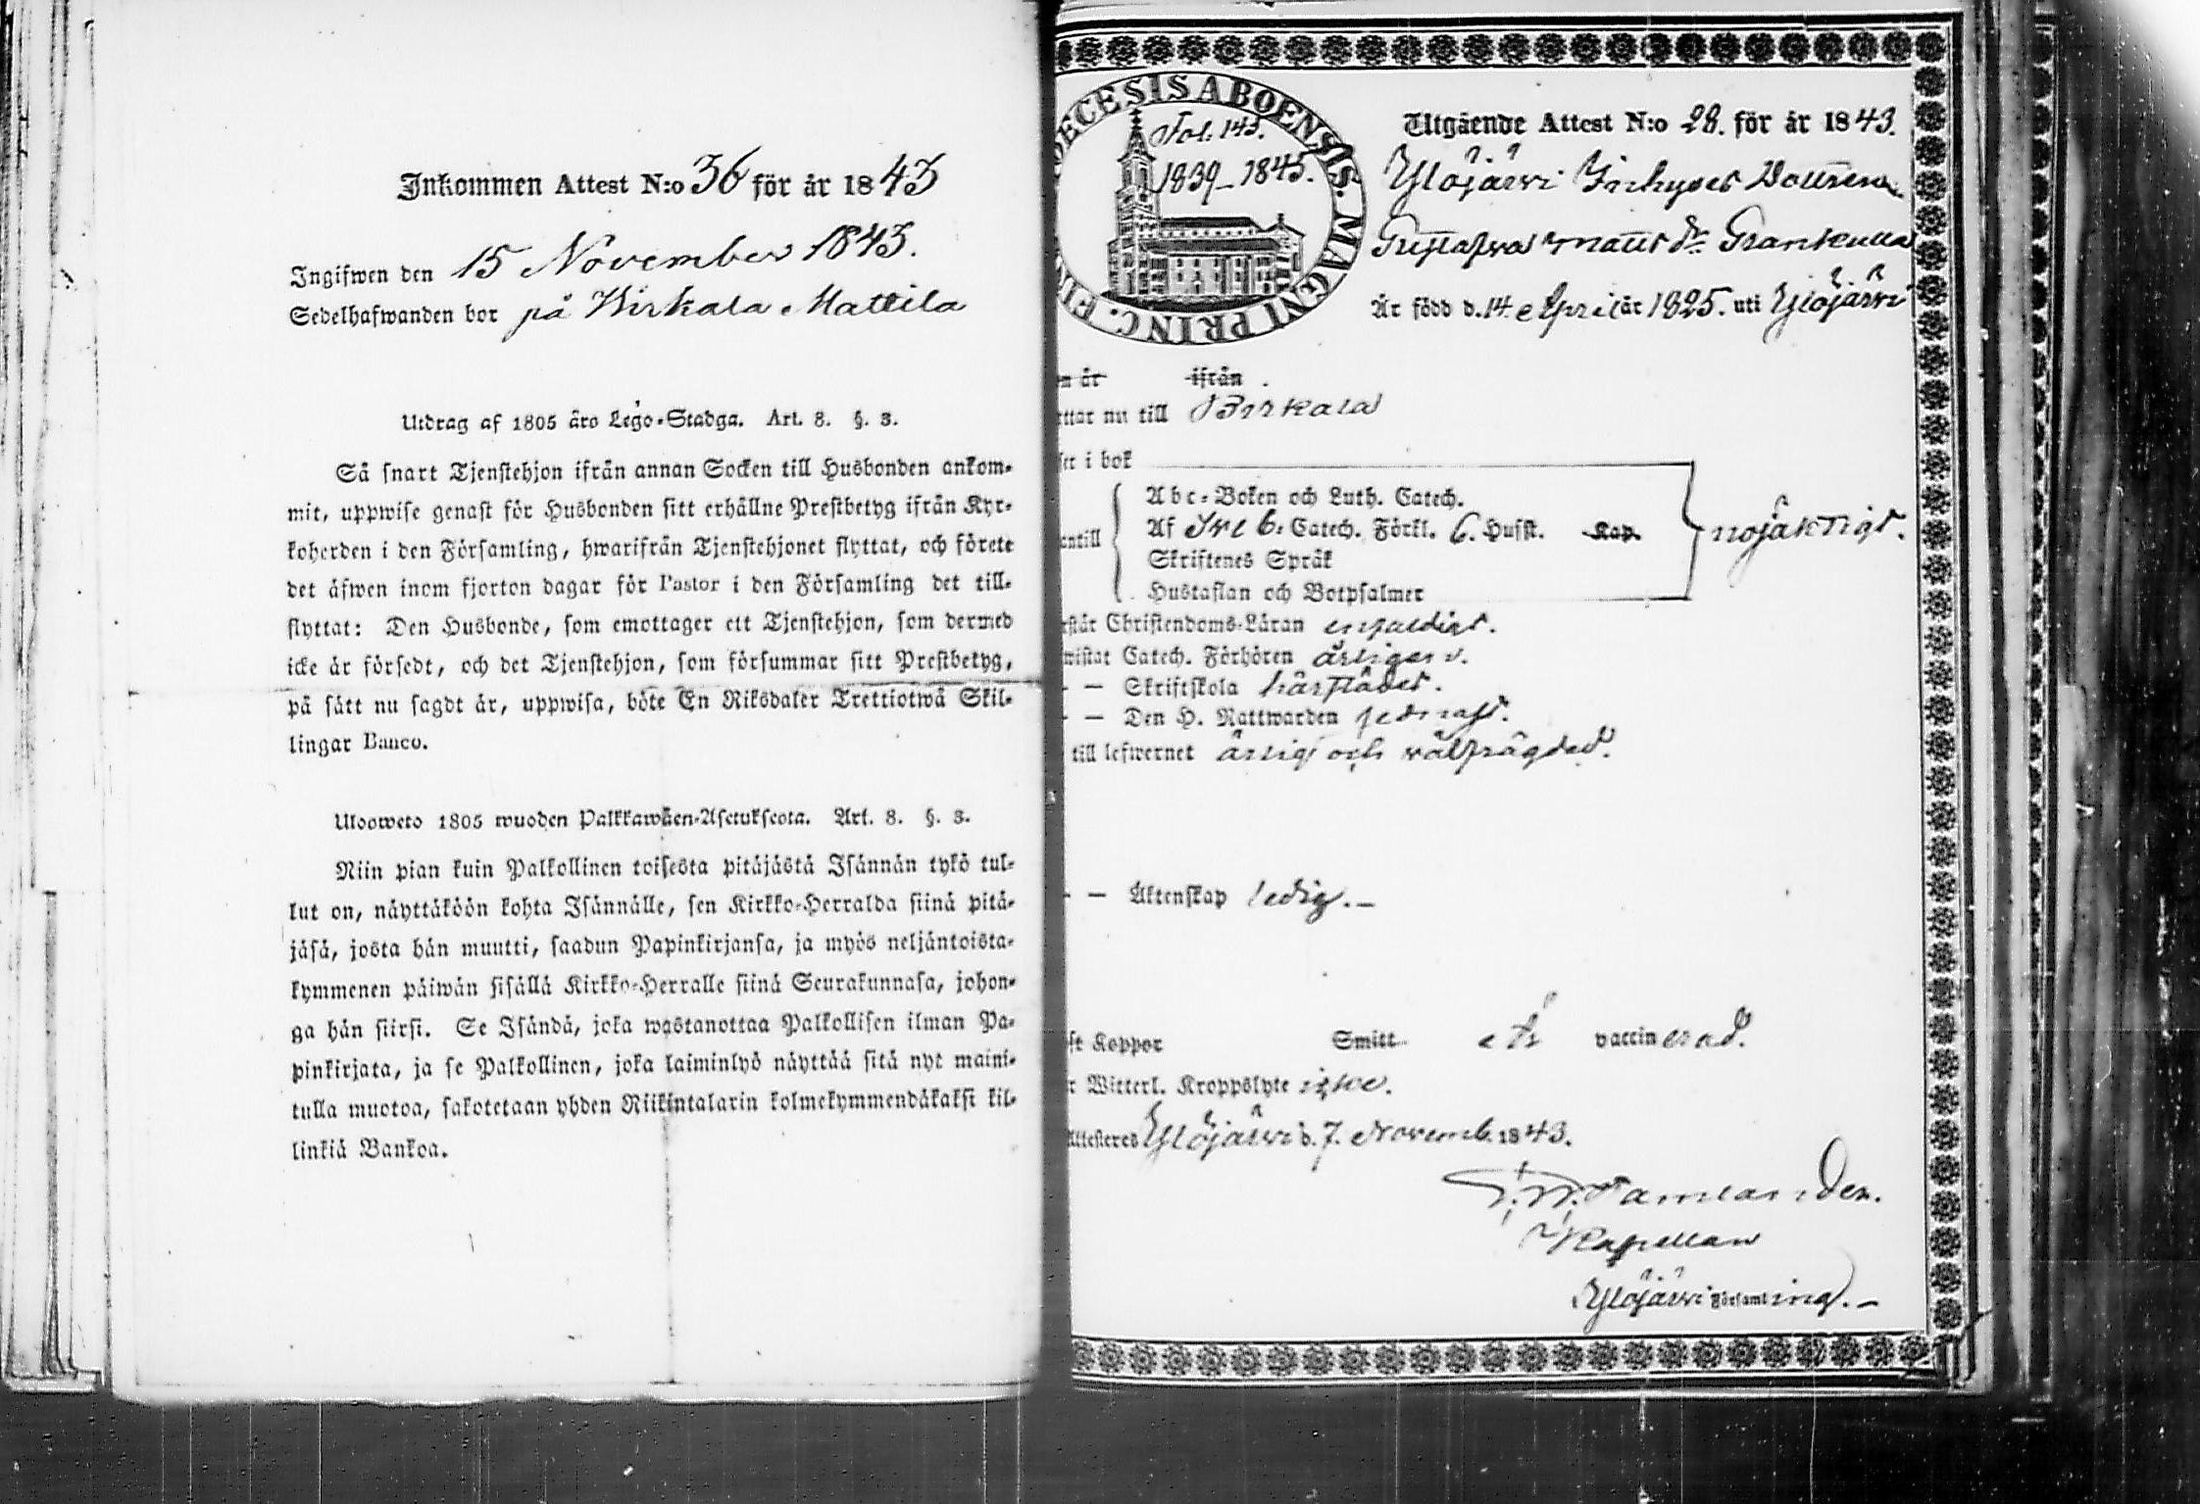 Inkommen Attest N:o 36 för år 1843
Ingifwen den 15 November 1843.
Sedelhafwanden bor på Birkala Mattila
Utdrag af 1805 års Lego-Stadga. Art. 8. §. 3.
Så snart Tjenstehjon ifrån annan Socken till Husbonden ankom-
mit, uppwise genast för Husbonden sitt erhållne Prestbetyg ifrån Kyr-
koherden i den Församling, hwarifrån Tjenstehjonet flyttat, och förete
det äfwen inom fjorton dagar för Pastor i den Församling det till-
flyttat: Den Husbonde, som emottager ett Tjenstehjon, som dermed
icke är försedt, och det Tjenstehjon, som försummar sitt Prestbetyg,
på sätt nu sagdt är, uppwisa, böte En Riksdaler Trettiotwå Skil-
lingar Banco.
Uloosweto 1805 wuoden Palkkawäen-Asetuksesta. Art. 8. §. 3.
Niin pian kuin Palkollinen toisesta pitäjästä Isännän tykö tul-
lut on, näyttäköön kohta Isännälle, sen Kirkko-Herralda siinä pitä-
jäsä, josta hän muutti, saadun Papinkirjansa, ja myös neljäntoista-
kymmenen päiwän sisällä Kirkko-Herralle siinä Seurakunnasa, johon-
ga hän siirsi. Se Isändä, joka wastanottaa Palkollisen ilman Pa-
pinkirjata, ja se Palkollinen, joka laiminlyö näyttää sitä nyt maini-
tulla muotoa, sakotetaan yhden Riikintalarin kolmekymmendäkaksi kil-
linkiä Bankoa.
OECESIS ABOENSIS. MAGNI PRINC. FIN
Fol. 143.
1839–1845.
Utgående Attest N:o 28. för år 1843.
Ylöjärwi Inhyses Dottren
Gustafwa Matts dr Grankulla
Är född d. 14 April år 1825. uti Ylöjärwi
n år ifrån
ttar nu till Birkala
ser i bok
Abc-Boken och Luth. Catech.
antill Af Sve b: Catech. Förkl. 6. Husst. Kap. nöjaktigt.
Skriftenes Språk
Hustaflan och Botpsalmer
rstår Christendoms-Läran enfaldigt.
wistat Catech. Förhören årligen.
– – Skriftskola härstädes.
– – Den H. Nattwarden sednast.
till lefwernet ärlig och välfrägdad.
– – Äktenskap ledig.–
ft Koppor Smitt är vaccinerad.
r Witterl. Kroppslyte icke.
Attesteres Ylöjärwi d. 7. Novemb. 1843.
Tamlander.
Kapellan
Ylöjärwi Församling.–